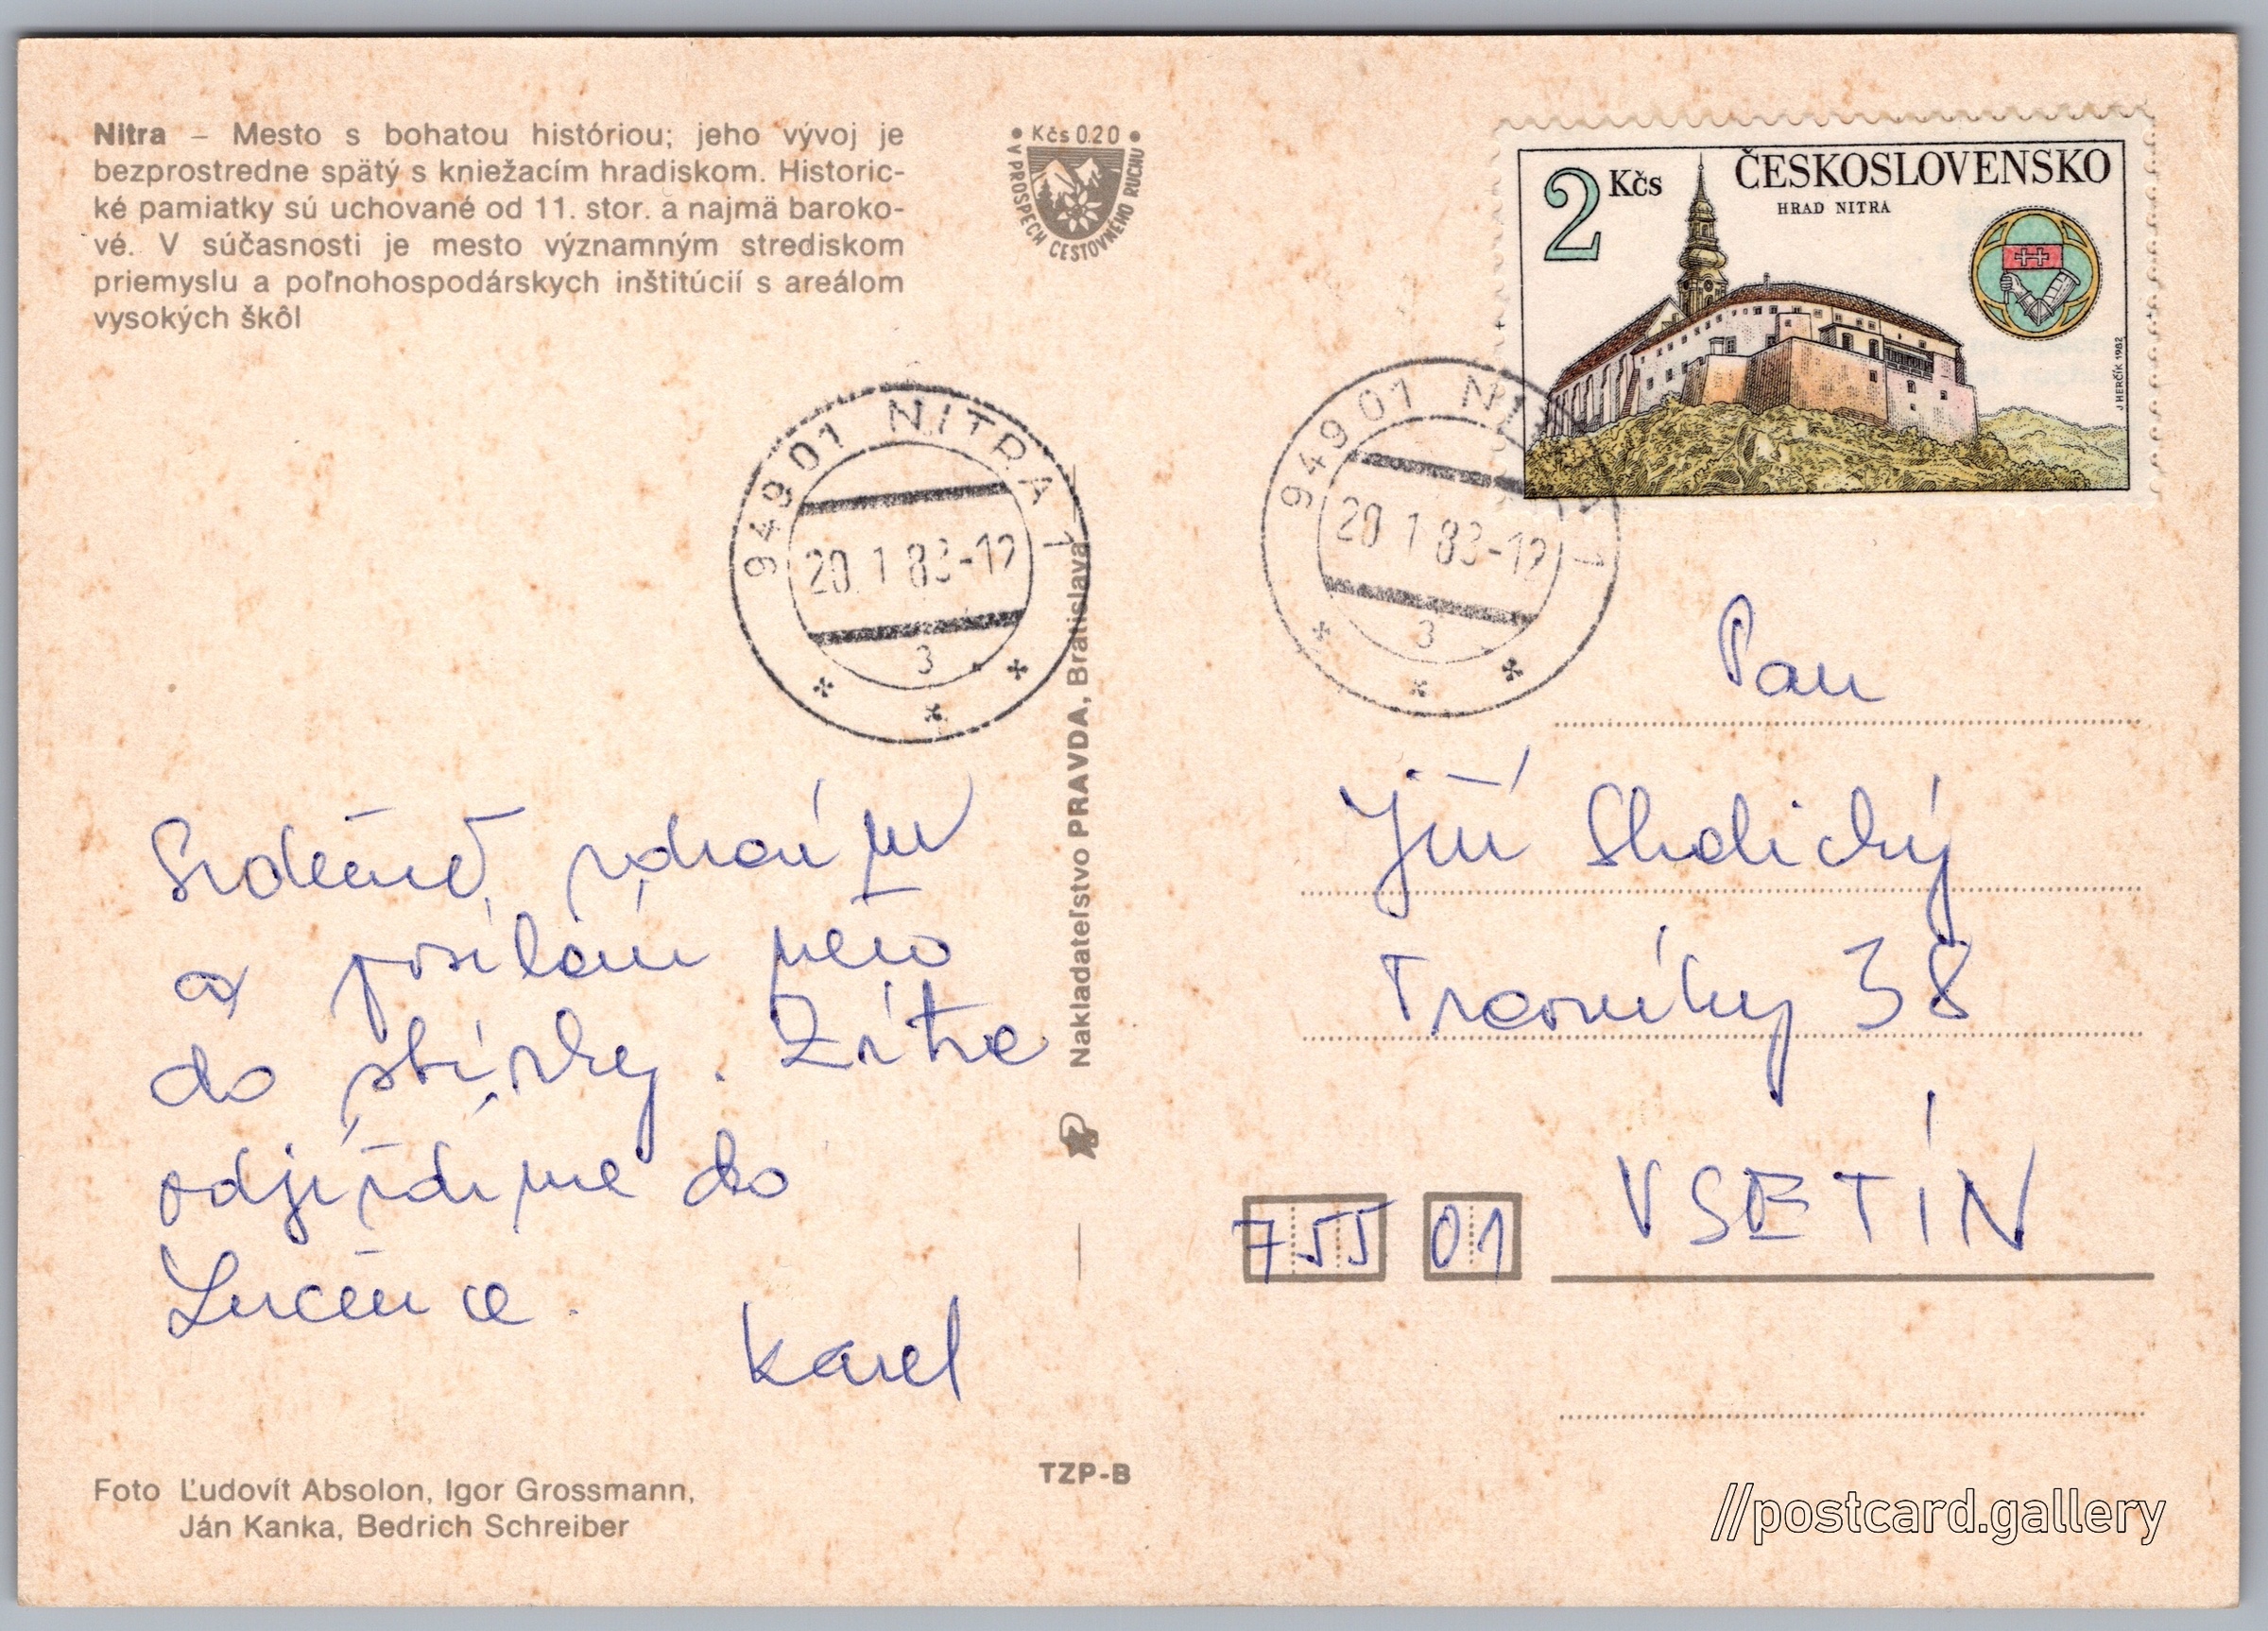 Nitra – Mesto s bohatou históriou; jeho vývoj je
bezprostredne spätý s kniežacím hradiskom. Historic-
ké pamiatky sú uchované od 11. stor. a najmä baroko-
vé. V súčasnosti je mesto významným strediskom
priemyslu a poľnohospodárskych inštitúcií s areálom
vysokých škôl
Kčs 0.20
V PROSPECH CESTOVNÉHO RUCHU
2 Kčs
ČESKOSLOVENSKO
HRAD NITRA
J HERČÍK 1982
949 01 NITRA 1
20. 1. 83-12
3
949 01 NITRA 1
20 1 83-12
3
Srdečně zdravím
a posílám něco
do sbírky. Zítra
odjíždíme do
Lučence.
Karel
Nakladateľstvo PRAVDA, Bratislava
Pan
Jiří
Trávníky 38
755 01
VSETÍN
Foto Ľudovít Absolon, Igor Grossmann,
Ján Kanka, Bedrich Schreiber
TZP-B
//postcard.gallery